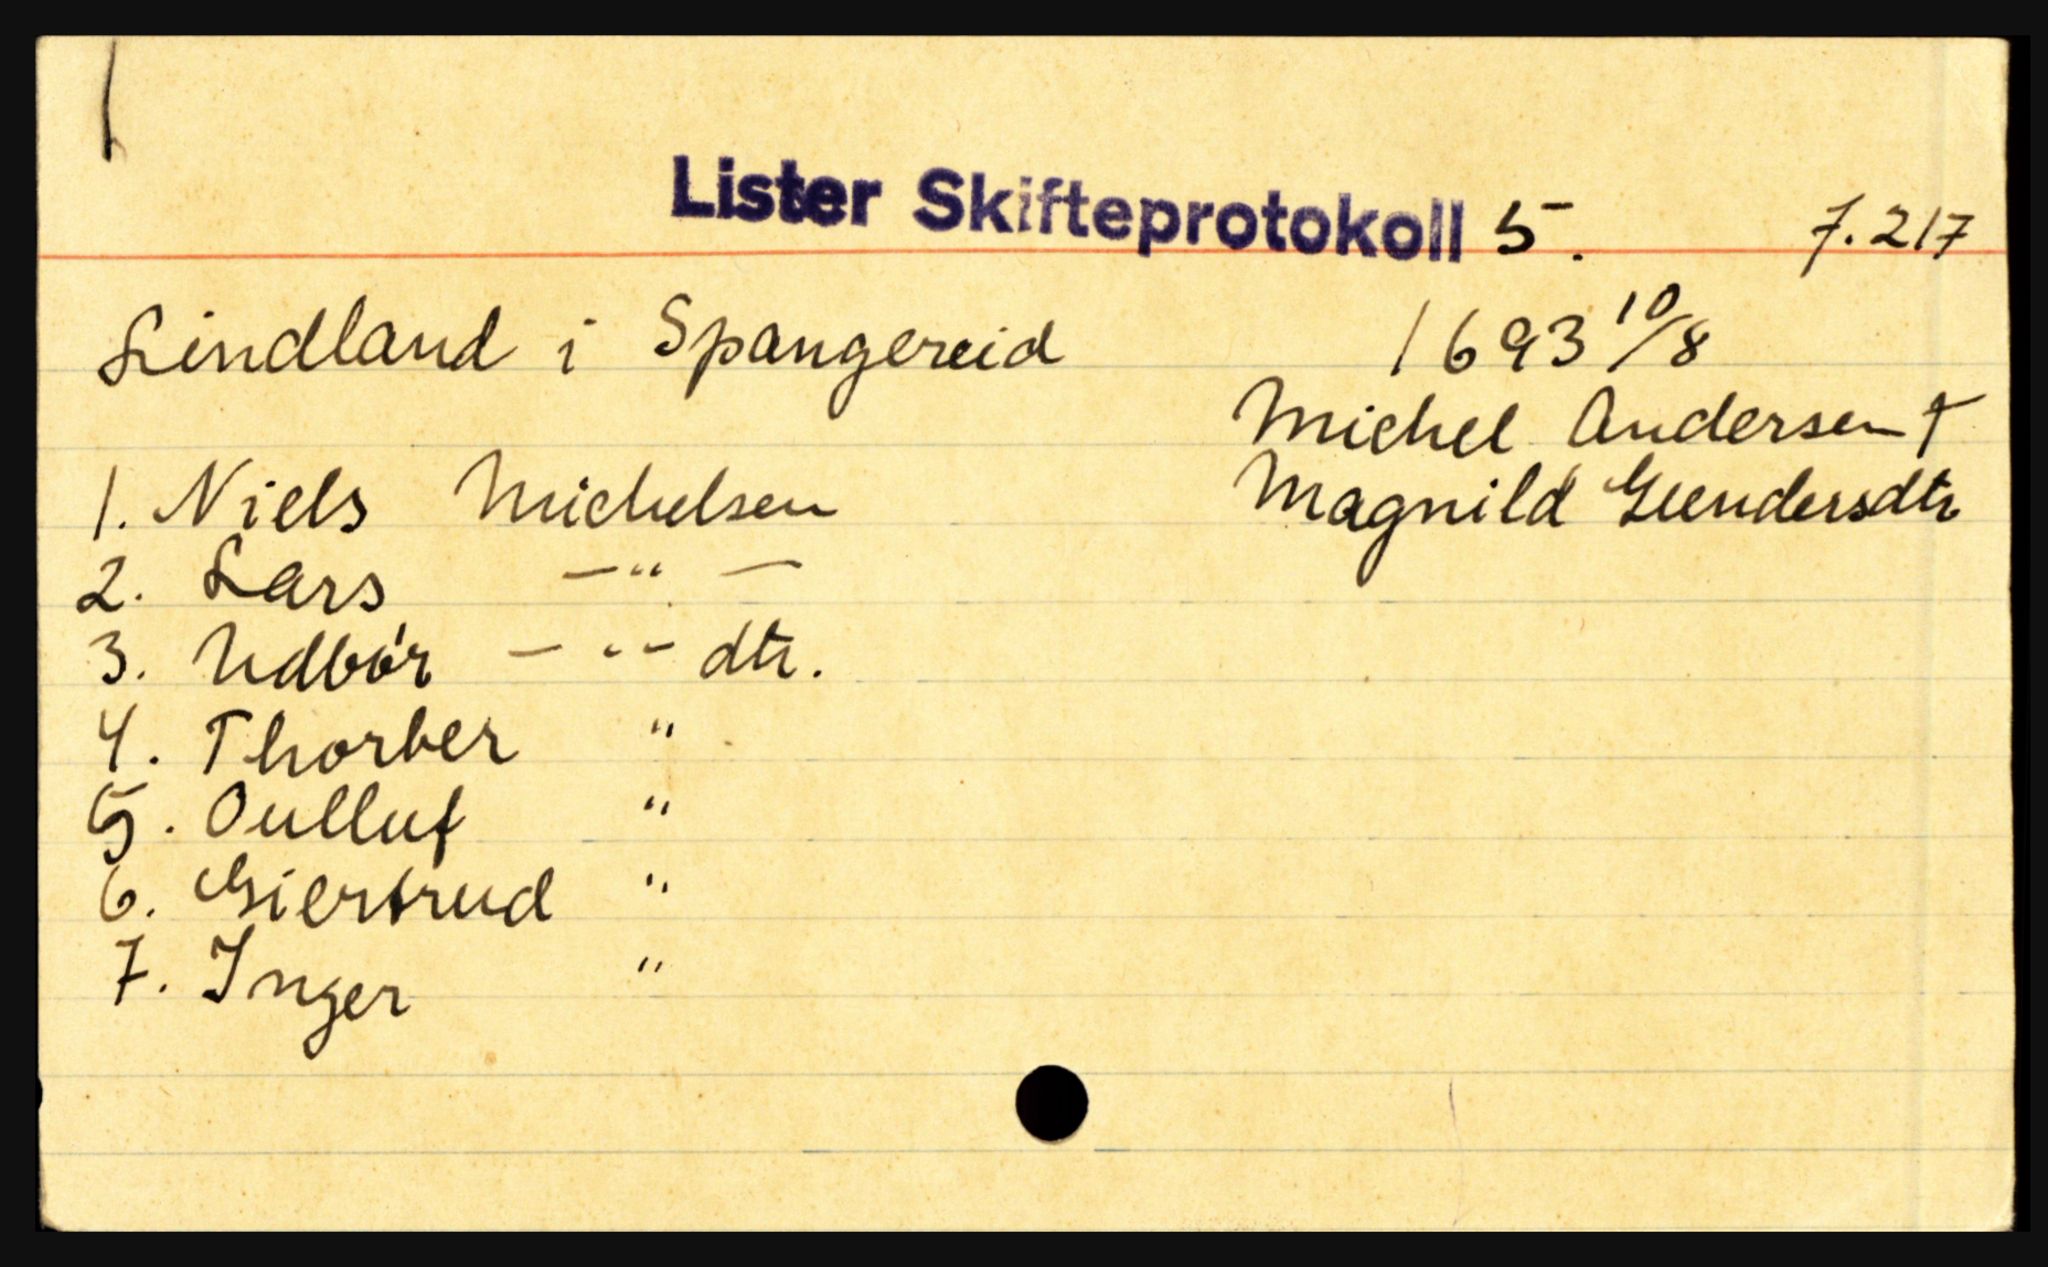 Lister Skifteprotokoll 5. f. 217
Lindland i Spangereid 1693 10/8
Michel Andersen †
Magnild Gundersdtr
1. Niels Michelsen
2. Lars —"—
3. Udbór —"— dtr.
4. Thorber "
5. Oulluf "
6. Giertrud "
7. Inger "